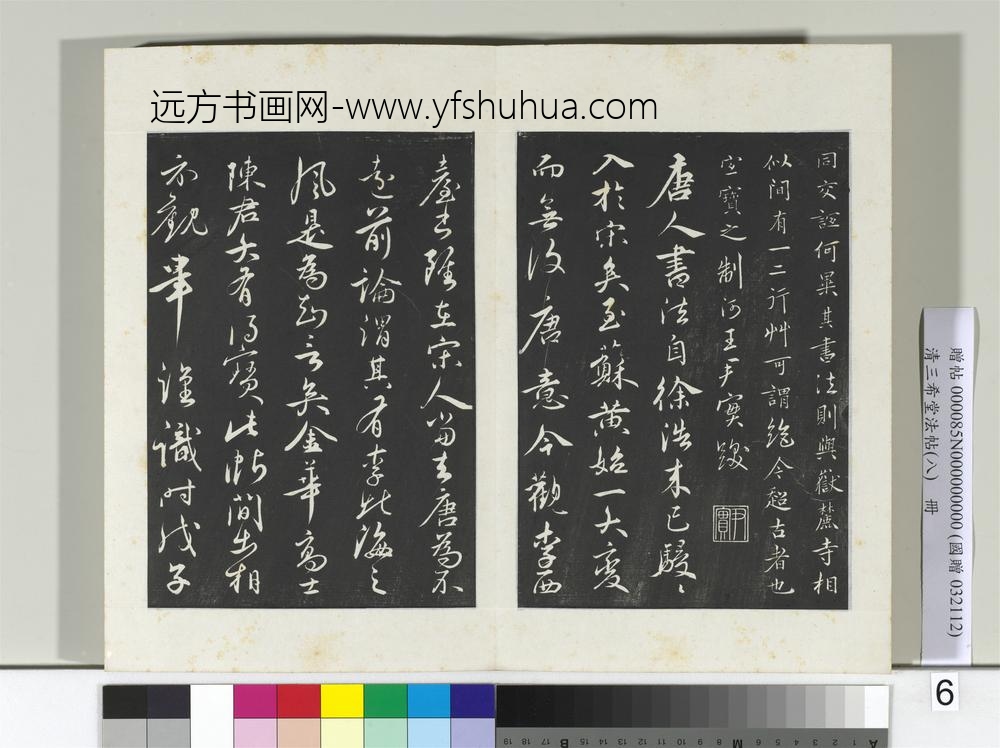 远方书画网-www.yfshuhua.com
同交証何異其書法則與嶽麓寺相
似間有一二行艸可謂絶今超古者也
宝寶之 制河王尹實跋
尹實
唐人書法自徐浩末已駸〻
入於宋矣至蘇黄始一大变
而無復唐意今觀李西
臺書雖在宋人當去唐為不
遠前論謂其有李北海之
風是為知言矣金華高士
陳君大有得寶此帖間出相
示觀畢謹識时戊子
贈帖 000085N000000000 (國贈 032112)
清三希堂法帖(八) 冊
6